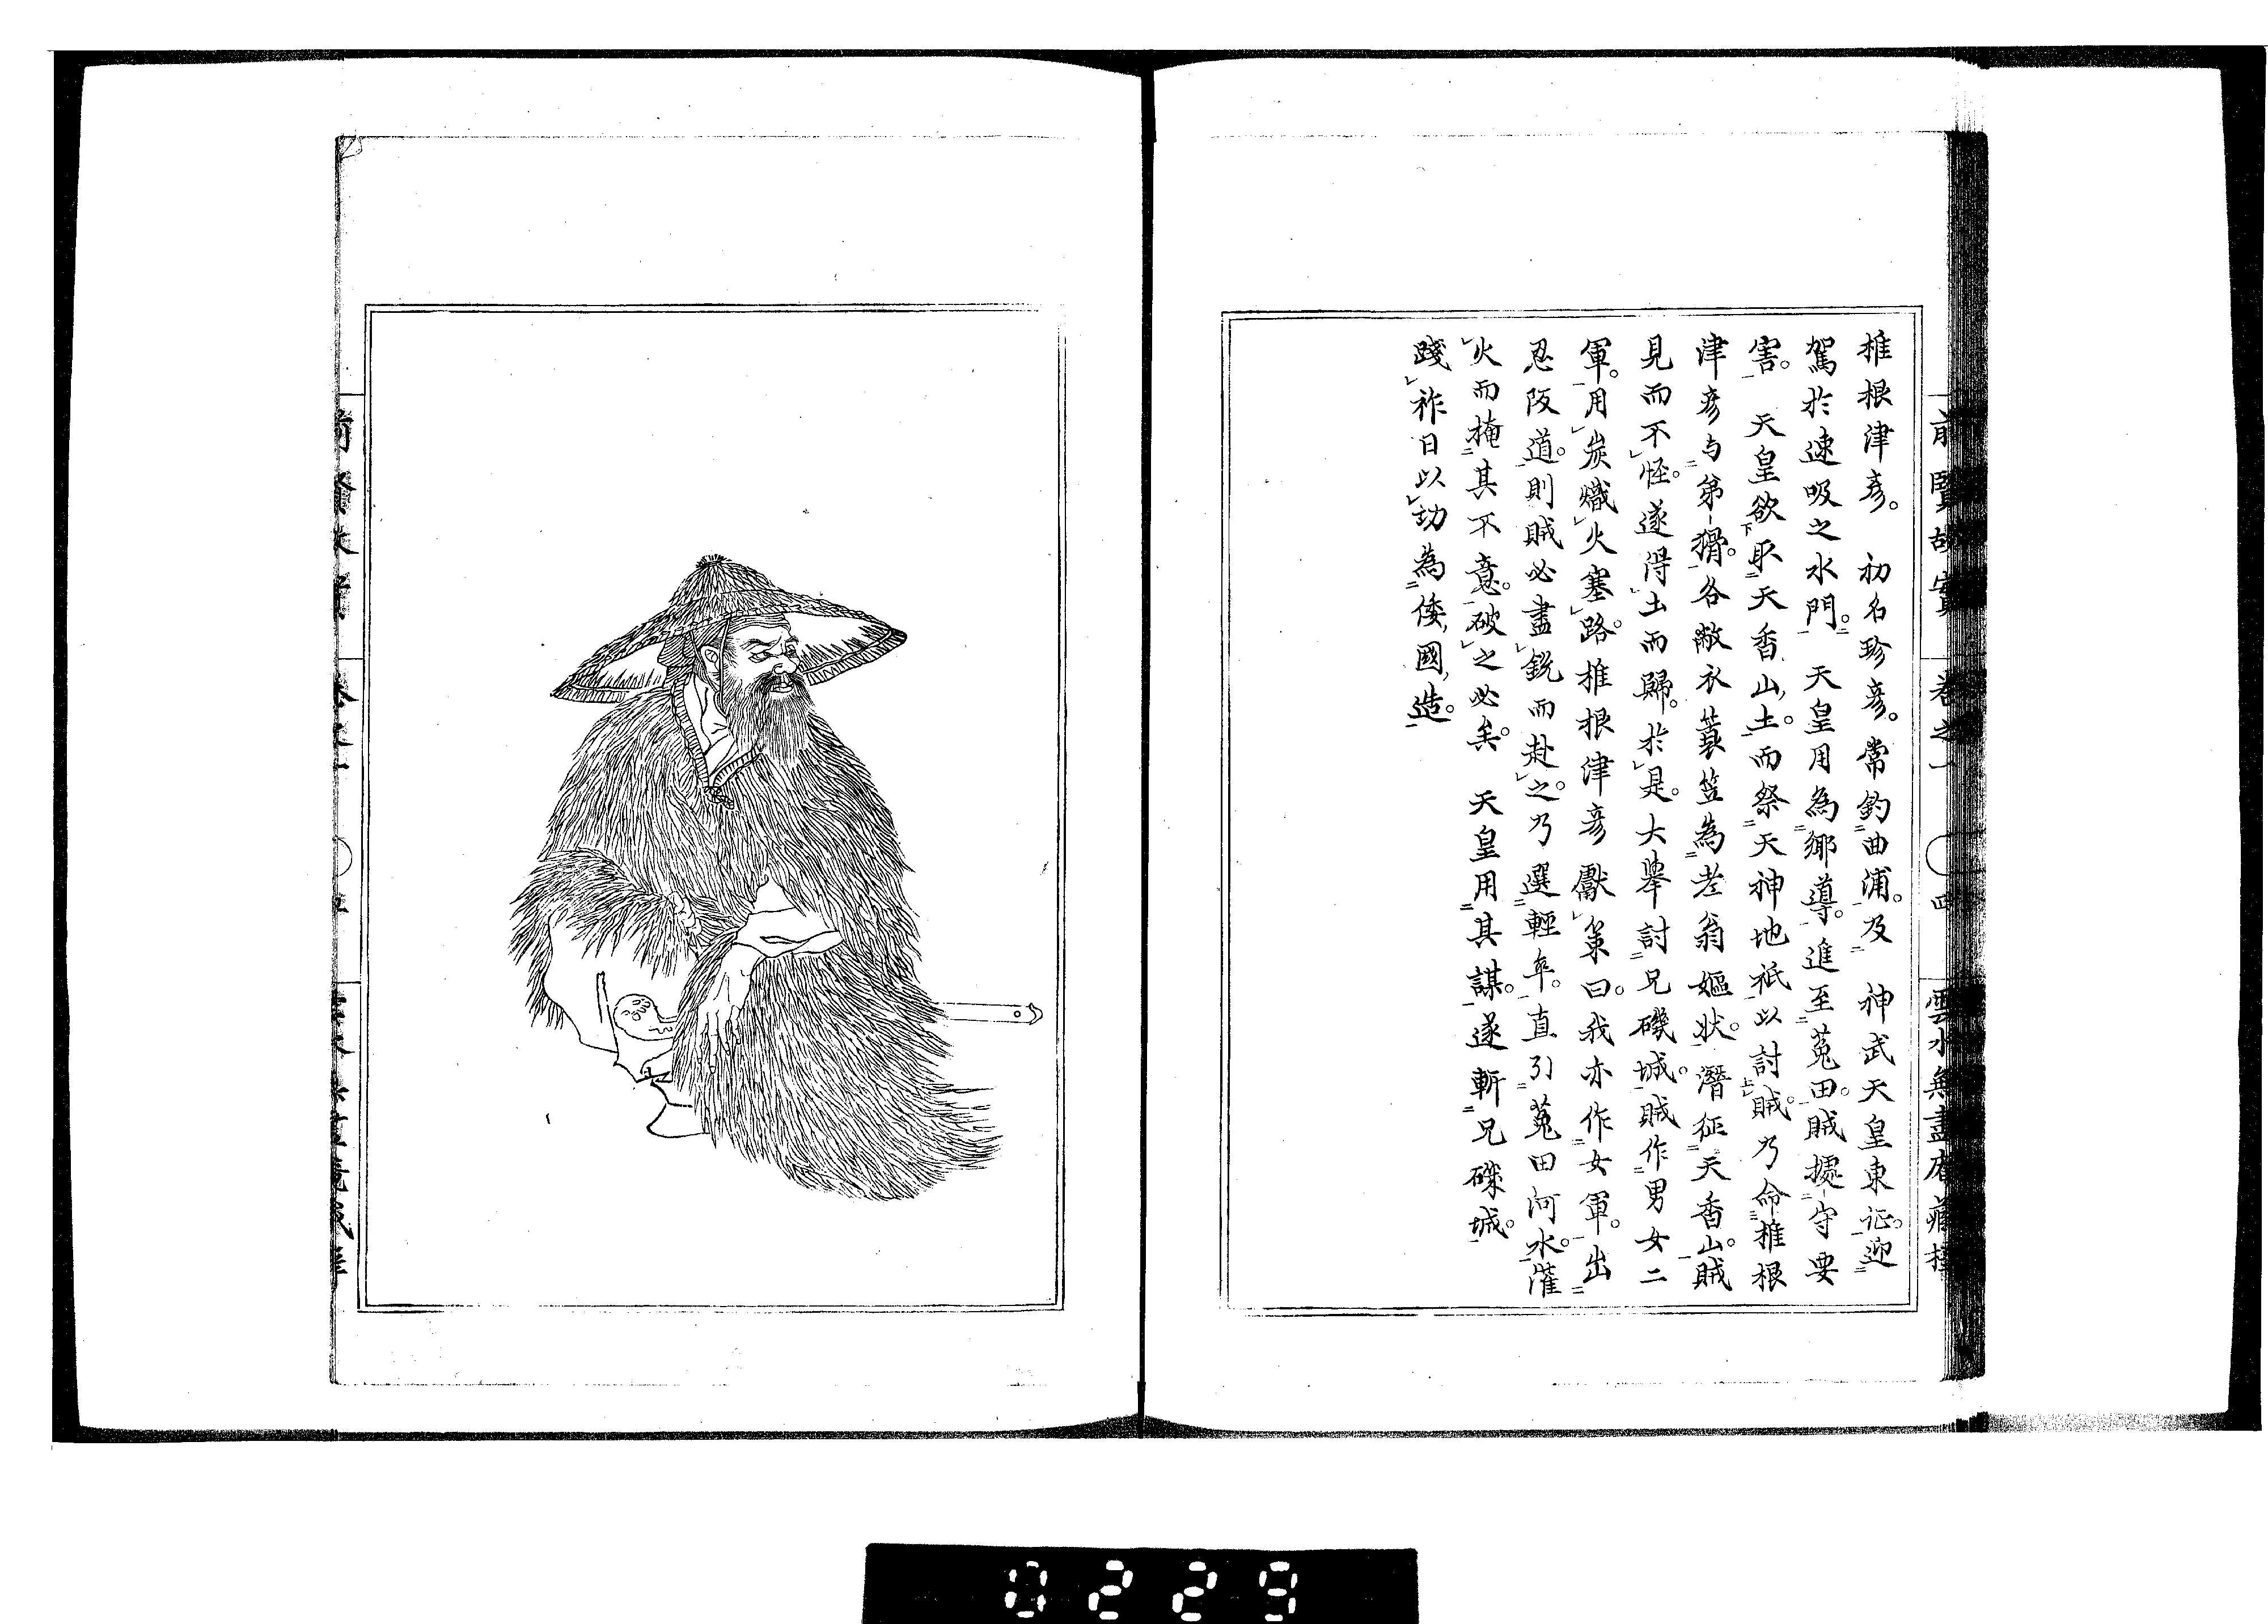 前賢故實 卷之一 四 雲水無盡庵藏
椎根津彦。 初名珍彦。常釣曲浦。及 神武天皇東征。迎
駕於速吸之水門。 天皇用為鄉導。進至菟田。賊據守要
害。 天皇欲取天香山土。而祭天神地祇以討賊。乃命椎根
津彦与弟猾。各敝衣蓑笠為老翁嫗狀。潛征天香山。賊
見而不怪。遂得土而歸。於是。大舉討兄磯城。賊作男女二
軍。用炭熾火塞路。椎根津彦獻策曰。我亦作女軍。出
忍阪道。則賊必盡銳而赴之。乃選輕卒。直引菟田河水。灌
火而掩其不意。破之必矣。 天皇用其謀。遂斬兄磯城。
踐祚日以功為倭國造。
0229